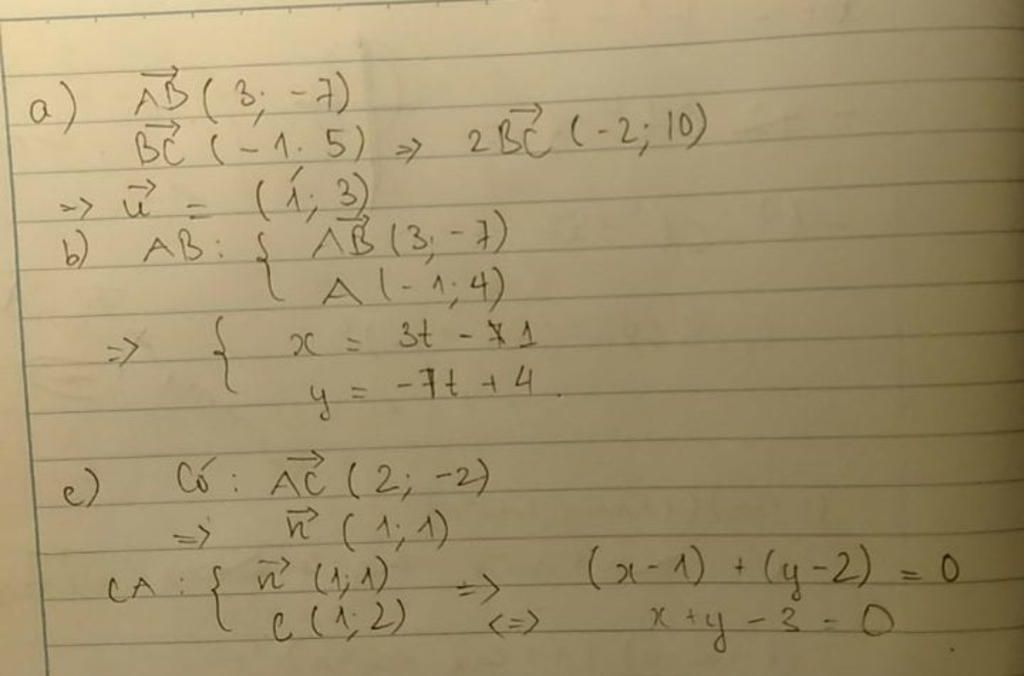 a) $\overrightarrow{AB}$ (3; -7)
$\overrightarrow{BC}$ (-1; 5) => 2$\overrightarrow{BC}$ (-2; 10)
=> $\overrightarrow{u}$ = (1; 3)
b) AB: { $\overrightarrow{AB}$ (3; -7)
A (-1; 4)
=> { x = 3t - 1
y = -7t + 4.
c) Có: $\overrightarrow{AC}$ (2; -2)
=> $\overrightarrow{n}$ (1; 1)
CA: { $\overrightarrow{n}$ (1; 1) => (x-1) + (y-2) = 0
C (1; 2) <=> x + y - 3 = 0